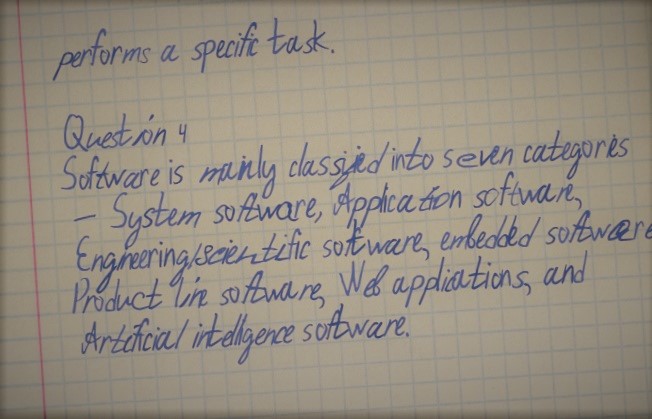 performs a specific task.
Question 4
Software is mainly classified into seven categories
– System software, Application software,
Engineering/scientific software, embedded software
Product line software, Web applications, and
Artificial intelligence software.